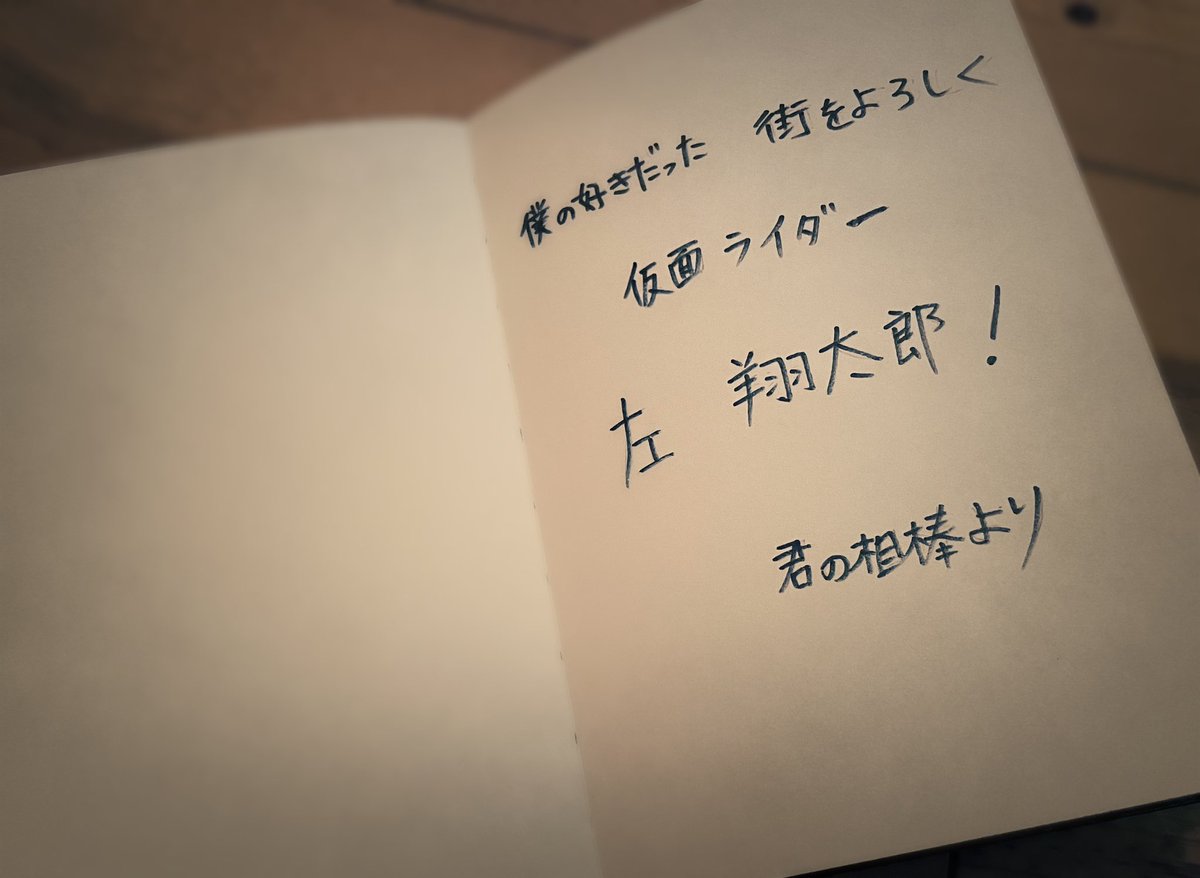 僕の好きだった 街をよろしく
仮面ライダー
左 翔太郎!
君の相棒より